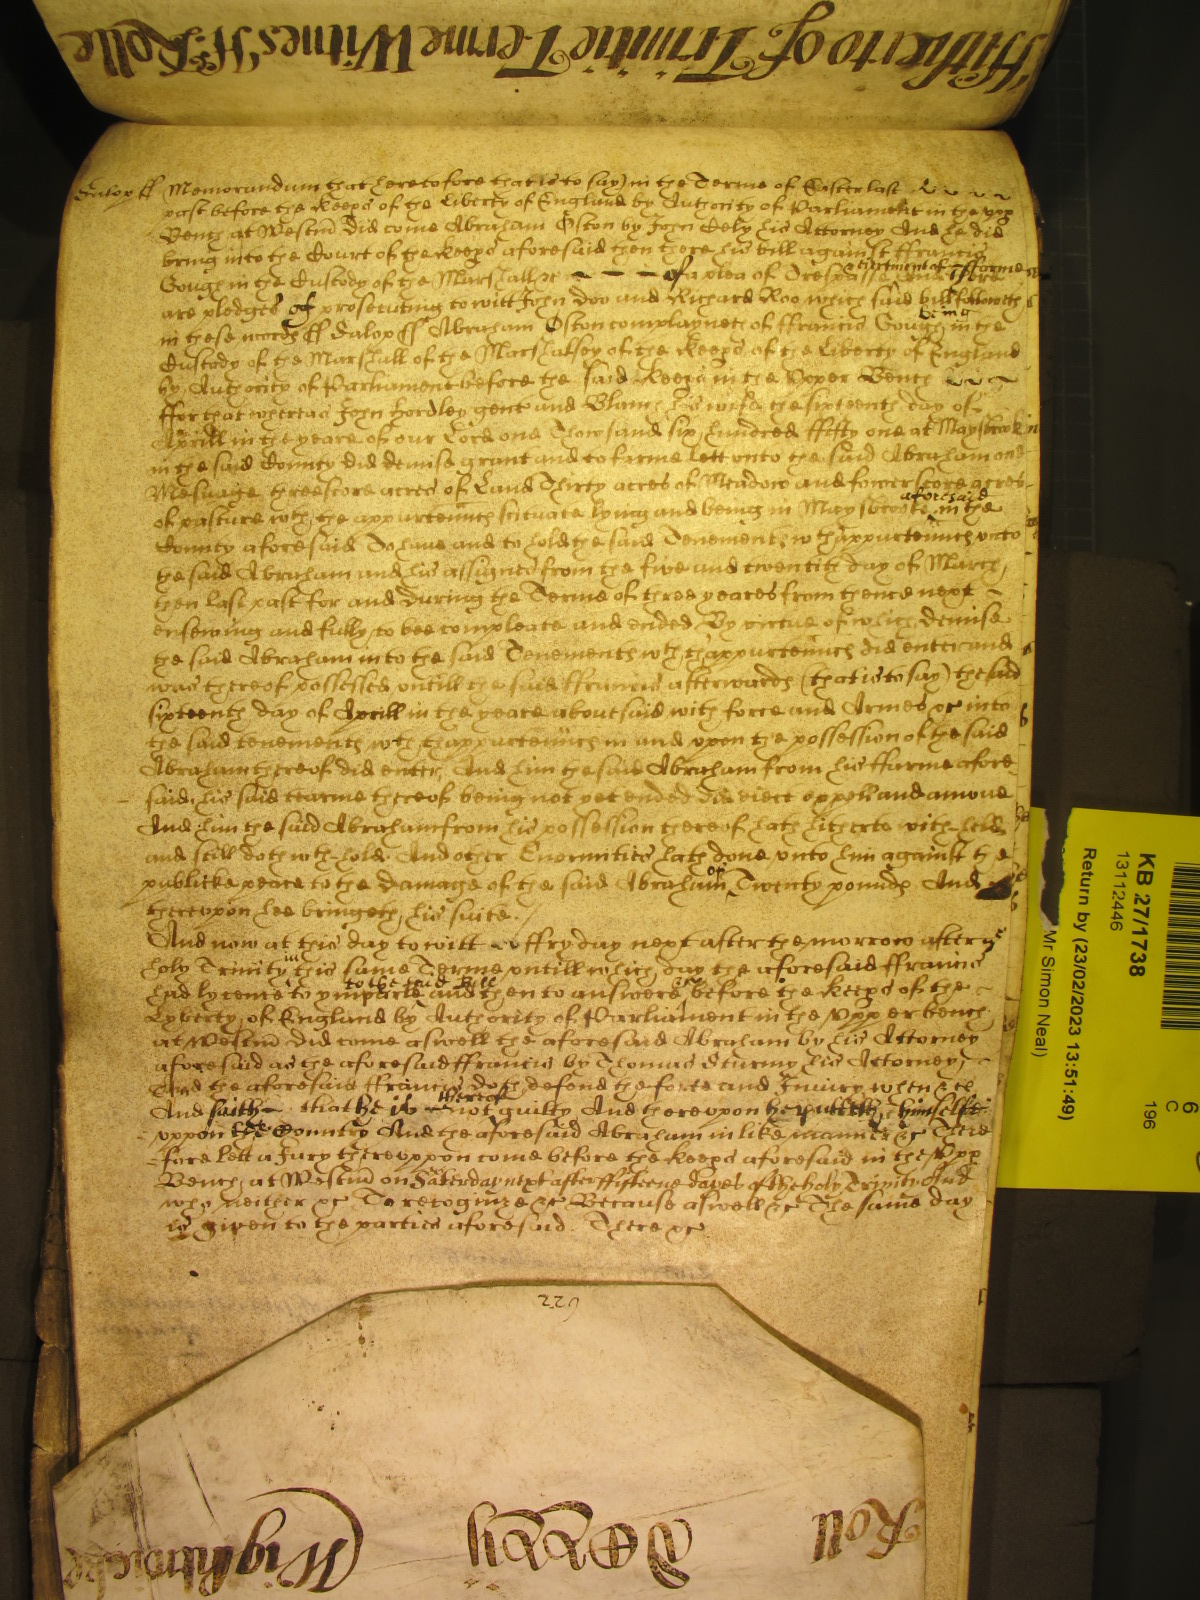 Hitherto of Trinitie Terme Witnes H: Rolle
Salop ss Memorandum that heretofore that is to say) in the Terme of Easter last
past before the Keeps of the Liberty of England by Authority of Parliament in the upp
Bench at Westm did come Abraham Oston by John Bely his Attorney And he did
bring into the Court of the Keeps aforesaid then there his bill against ffrancis
Gough in the Custody of the Marshall &c - - - of a plea of Trespasse eiectment of fferme And there
are pledges of prosecuting to witt John Doo and Richard Roo which said bill followeth
in these words ss Salop ss Abraham Oston complayneth of ffrancis Gough being in the
Custody of the Marshall of the Marshalsey of the Keeps of the Liberty of England
by Authority of Parliament before the said Keeps in the Upper Bench
ffor that whereas John Hordley gent and Blanch his wife the sixteenth day of
Aprill in the yeare of our Lord one Thowsand six hundred fifty one at Maysbrooke
in the said County did demise grant and to farme lett unto the said Abraham one
Mesuage threescore acres of Land Thirty acres of Meadow and fowerscore acres
of pasture wth the appurtennces scituate lying and being in Maysbrooke aforesaid in the
County aforesaid To have and to hold the said Tenements wth thappurtennces unto
the said Abraham and his assignes from the five and twentith day of March
then last past for and during the Terme of three yeares from thence next
ensewing and fully to bee compleate and ended By virtue of which demise
the said Abraham into the said Tenements wth thappurtennces did enter and
was thereof possessed untill the said ffrancis afterwards (that is to say) the said
sixteenth day of Aprill in the yeare abovesaid with force and Armes &c into
the said tenements wth thappurtennces in and upon the possession of the said
Abraham thereof did enter And him the said Abraham from his ffarme afore
said his said tearme thereof being not yet ended did eiect expell and amove
And him the said Abraham from his possession thereof hath hitherto with-held
and still doth wth-hold And other Enormities hath done unto him against the
publicke peace to the damage of the said Abraham of Twenty pounds And
thereupon hee bringeth his suite.
And now at this day to witt ffryday next after the morrow after ye
holy Trinity in this same Terme untill which day the aforesaid ffrancis
had lycence to ymparle to the said bill and then to answere &c before the Keeps of the
Lyberty of England by Authority of Parliament in the Upper bench
at Westm did come aswell the aforesaid Abraham by his Attorney
aforesaid as the aforesaid ffrancis by Thomas Sturmy his Attorney
And the aforesaid ffrancis doth defend the force and Iniury when &c
And saith that he is thereof not guilty And thereupon he putteth himselfe
uppon the Country And the aforesaid Abraham in like manner &c There
fore lett a Jury thereuppon come before the Keeps aforesaid in the Upp
Bench at Westm on Saterday next after ffifteene dayes of the holy Trinity And
who neither &c To recognize &c Because aswell &c The same day
is given to the parties aforesaid There &c
622
Roll Sexby Wightwicke
KB 27/1738
13112446
Return by (23/02/2023 13:51:49)
Mr Simon Neal)
6
C
196